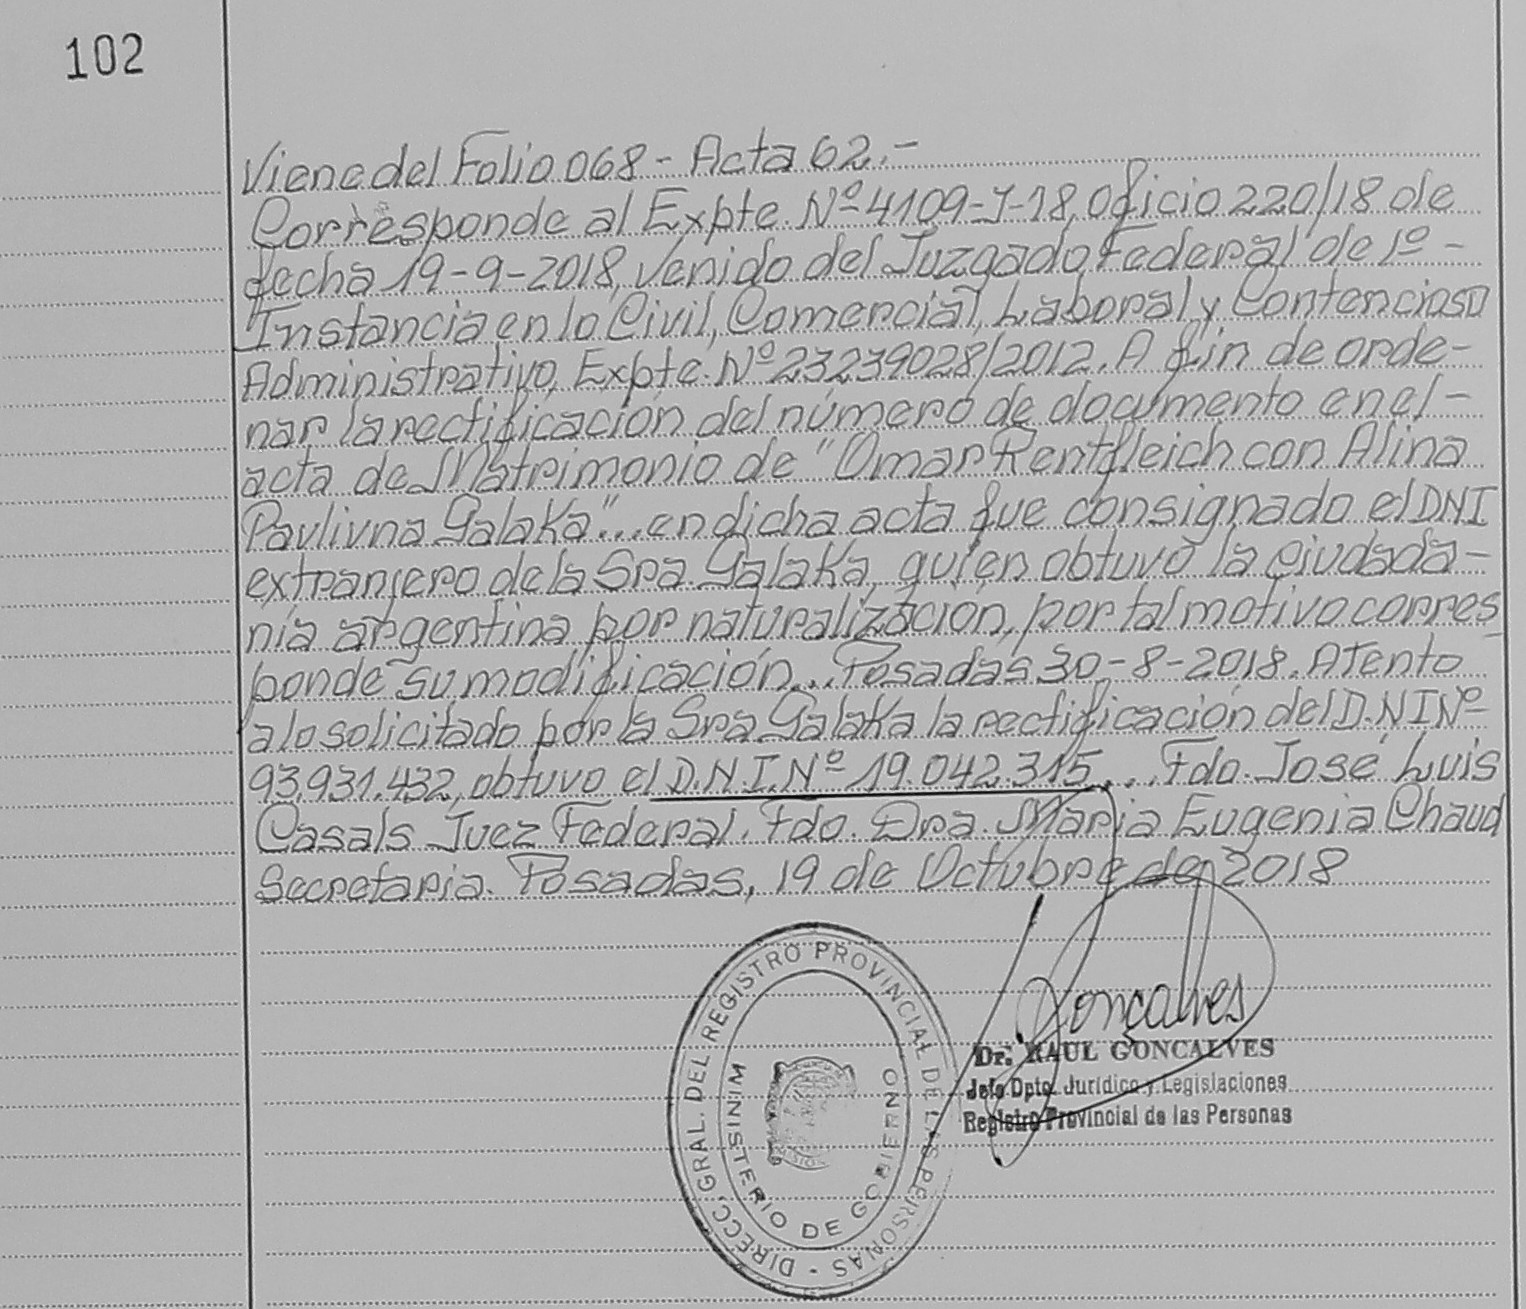 102
Viene del Folio 068 - Acta 62.-
Corresponde al Expte. Nº 4109-J-18, oficio 220/18 de
fecha 19-9-2018, venido del Juzgado Federal de 1º -
Instancia en lo Civil, Comercial, Laboral y Contencioso
Administrativo, Expte. Nº 23239028/2012. A fin de orde-
nar la rectificación del número de documento en el -
acta de Matrimonio de "Omar Rentfleich con Alina
Pavlivna Galaka"... en dicha acta fue consignado el DNI
extranjero de la Sra. Galaka, quien obtuvo la ciudada-
nía argentina por naturalización, por tal motivo corres
ponde su modificación... Posadas 30-8-2018. Atento
a lo solicitado por la Sra Galaka la rectificación del D.NI Nº
93.931.432, obtuvo el D.N.I. Nº 19.042.315... Fdo. José Luis
Casals Juez Federal. Fdo. Dra. Maria Eugenia Chaud
Secretaria. Posadas, 19 de Octubre de 2018
DIRECC. GRAL. DEL REGISTRO PROVINCIAL DE LAS PERSONAS -
MINISTERIO DE GOBIERNO
Goncalves
Dr. RAUL GONCALVES
Jefe Dpto. Jurídico y Legislaciones
Registro Provincial de las Personas